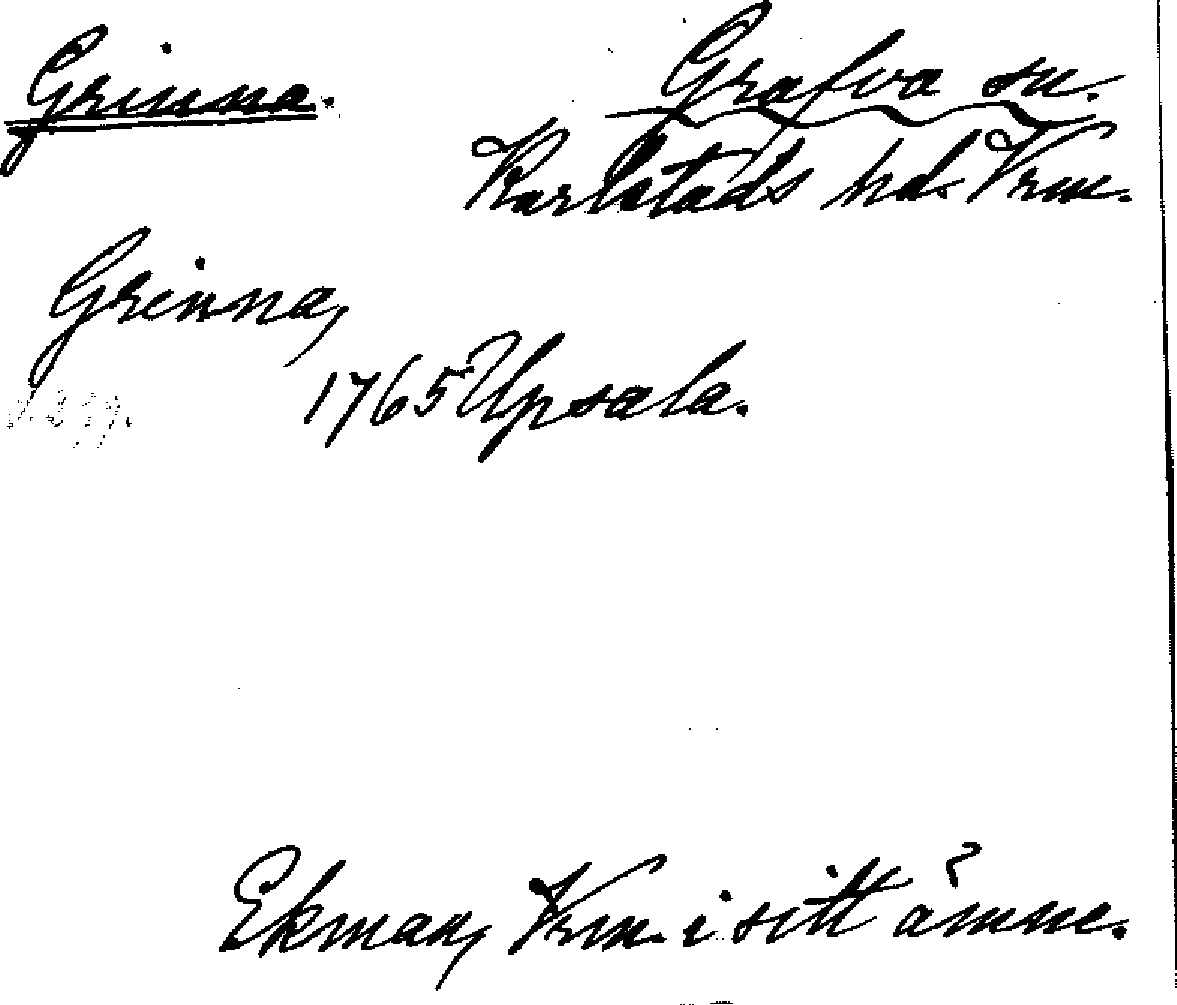 Grinna.
Grafva sn.
Karlstads hd. Vrm.
Grinna,
1765 Upsala.
Ekman, Vrm. i sitt ämne.